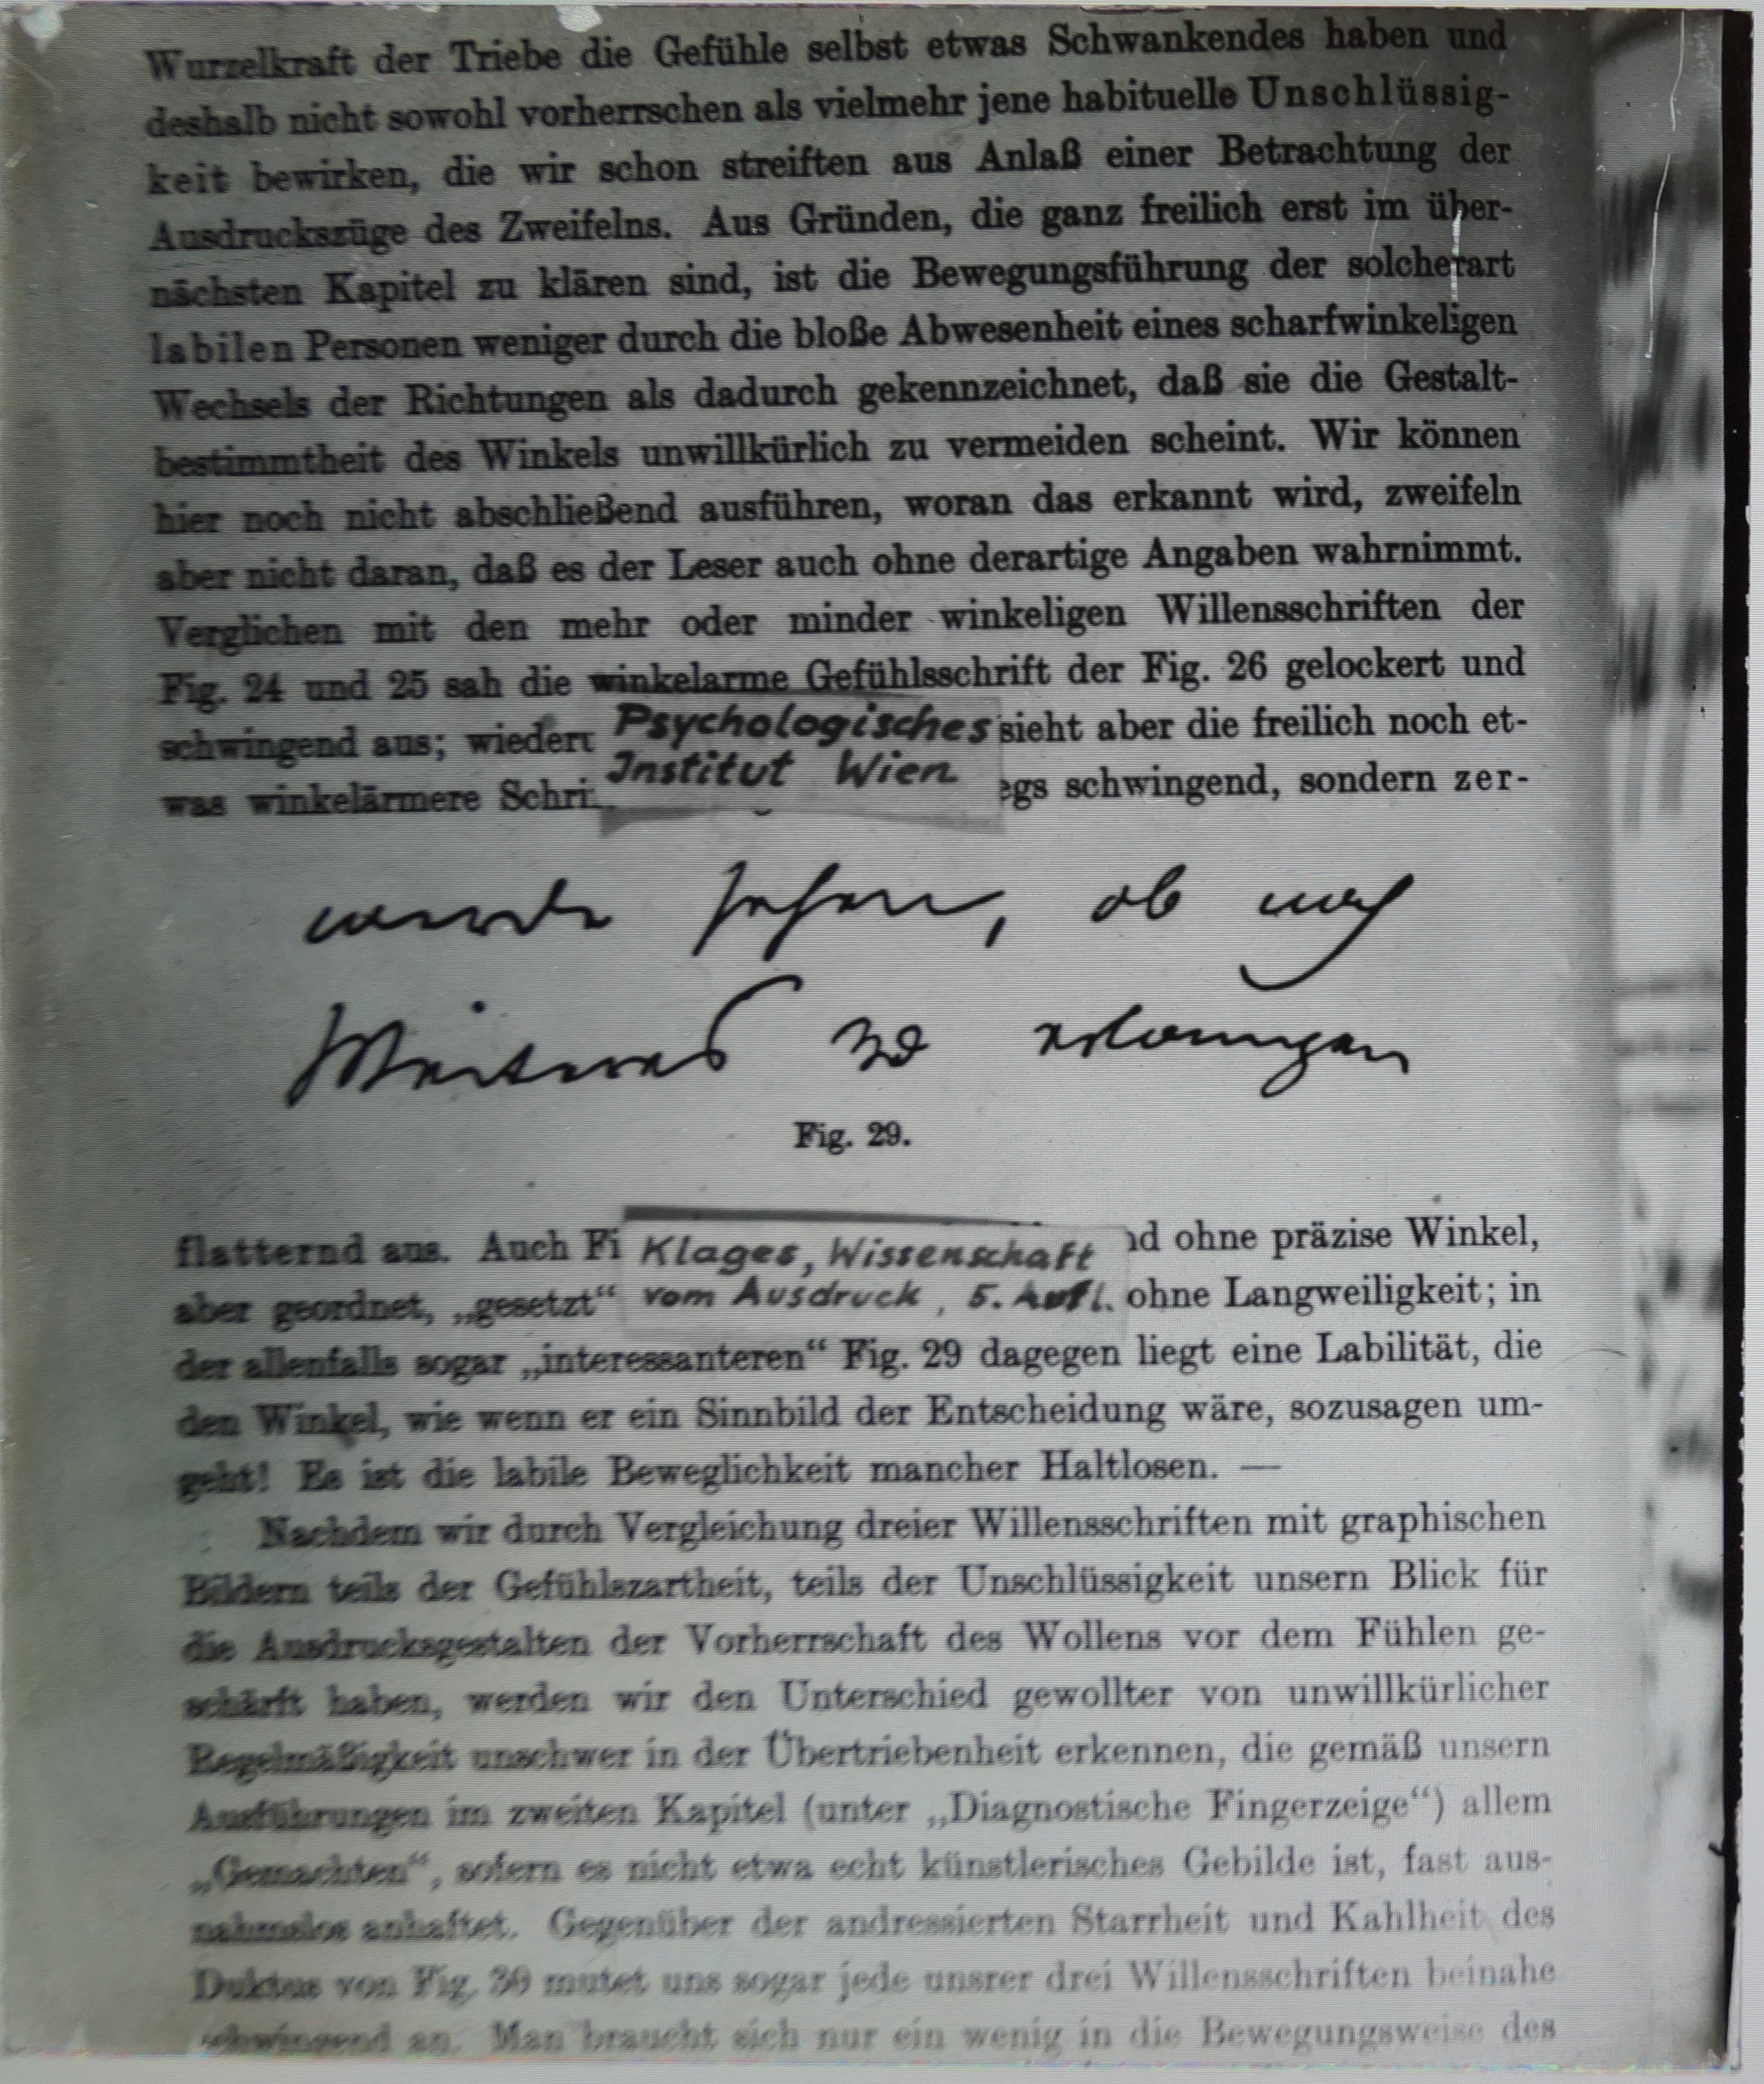 Wurzelkraft der Triebe die Gefühle selbst etwas Schwankendes haben und
deshalb nicht sowohl vorherrschen als vielmehr jene habituelle Unschlüssig-
keit bewirken, die wir schon streiften aus Anlaß einer Betrachtung der
Ausdruckszüge des Zweifelns. Aus Gründen, die ganz freilich erst im über-
nächsten Kapitel zu klären sind, ist die Bewegungsführung der solcherart
labilen Personen weniger durch die bloße Abwesenheit eines scharfwinkeligen
Wechsels der Richtungen als dadurch gekennzeichnet, daß sie die Gestalt-
bestimmtheit des Winkels unwillkürlich zu vermeiden scheint. Wir können
hier noch nicht abschließend ausführen, woran das erkannt wird, zweifeln
aber nicht daran, daß es der Leser auch ohne derartige Angaben wahrnimmt.
Verglichen mit den mehr oder minder winkeligen Willensschriften der
Fig. 24 und 25 sah die winkelarme Gefühlsschrift der Fig. 26 gelockert und
schwingend aus; wieder sieht aber die freilich noch et-
Psychologisches
Institut Wien
was winkelärmere Schri egs schwingend, sondern zer-
ob
Weiteres zu erlangen
Fig. 29.
flatternd aus. Auch Fi nd ohne präzise Winkel,
Klages, Wissenschaft
vom Ausdruck, 5. Aufl.
aber geordnet, „gesetzt“ ohne Langweiligkeit; in
der allenfalls sogar „interessanteren“ Fig. 29 dagegen liegt eine Labilität, die
den Winkel, wie wenn er ein Sinnbild der Entscheidung wäre, sozusagen um-
geht! Es ist die labile Beweglichkeit mancher Haltlosen. —
Nachdem wir durch Vergleichung dreier Willensschriften mit graphischen
Bildern teils der Gefühlszartheit, teils der Unschlüssigkeit unsern Blick für
die Ausdrucksgestalten der Vorherrschaft des Wollens vor dem Fühlen ge-
schärft haben, werden wir den Unterschied gewollter von unwillkürlicher
Regelmäßigkeit unschwer in der Übertriebenheit erkennen, die gemäß unsern
Ausführungen im zweiten Kapitel (unter „Diagnostische Fingerzeige“) allem
„Gemachten“, sofern es nicht etwa echt künstlerisches Gebilde ist, fast aus-
nahmslos anhaftet. Gegenüber der andressierten Starrheit und Kahlheit des
Duktus von Fig. 30 mutet uns sogar jede unsrer drei Willensschriften beinahe
schwingend an. Man braucht sich nur ein wenig in die Bewegungsweise des